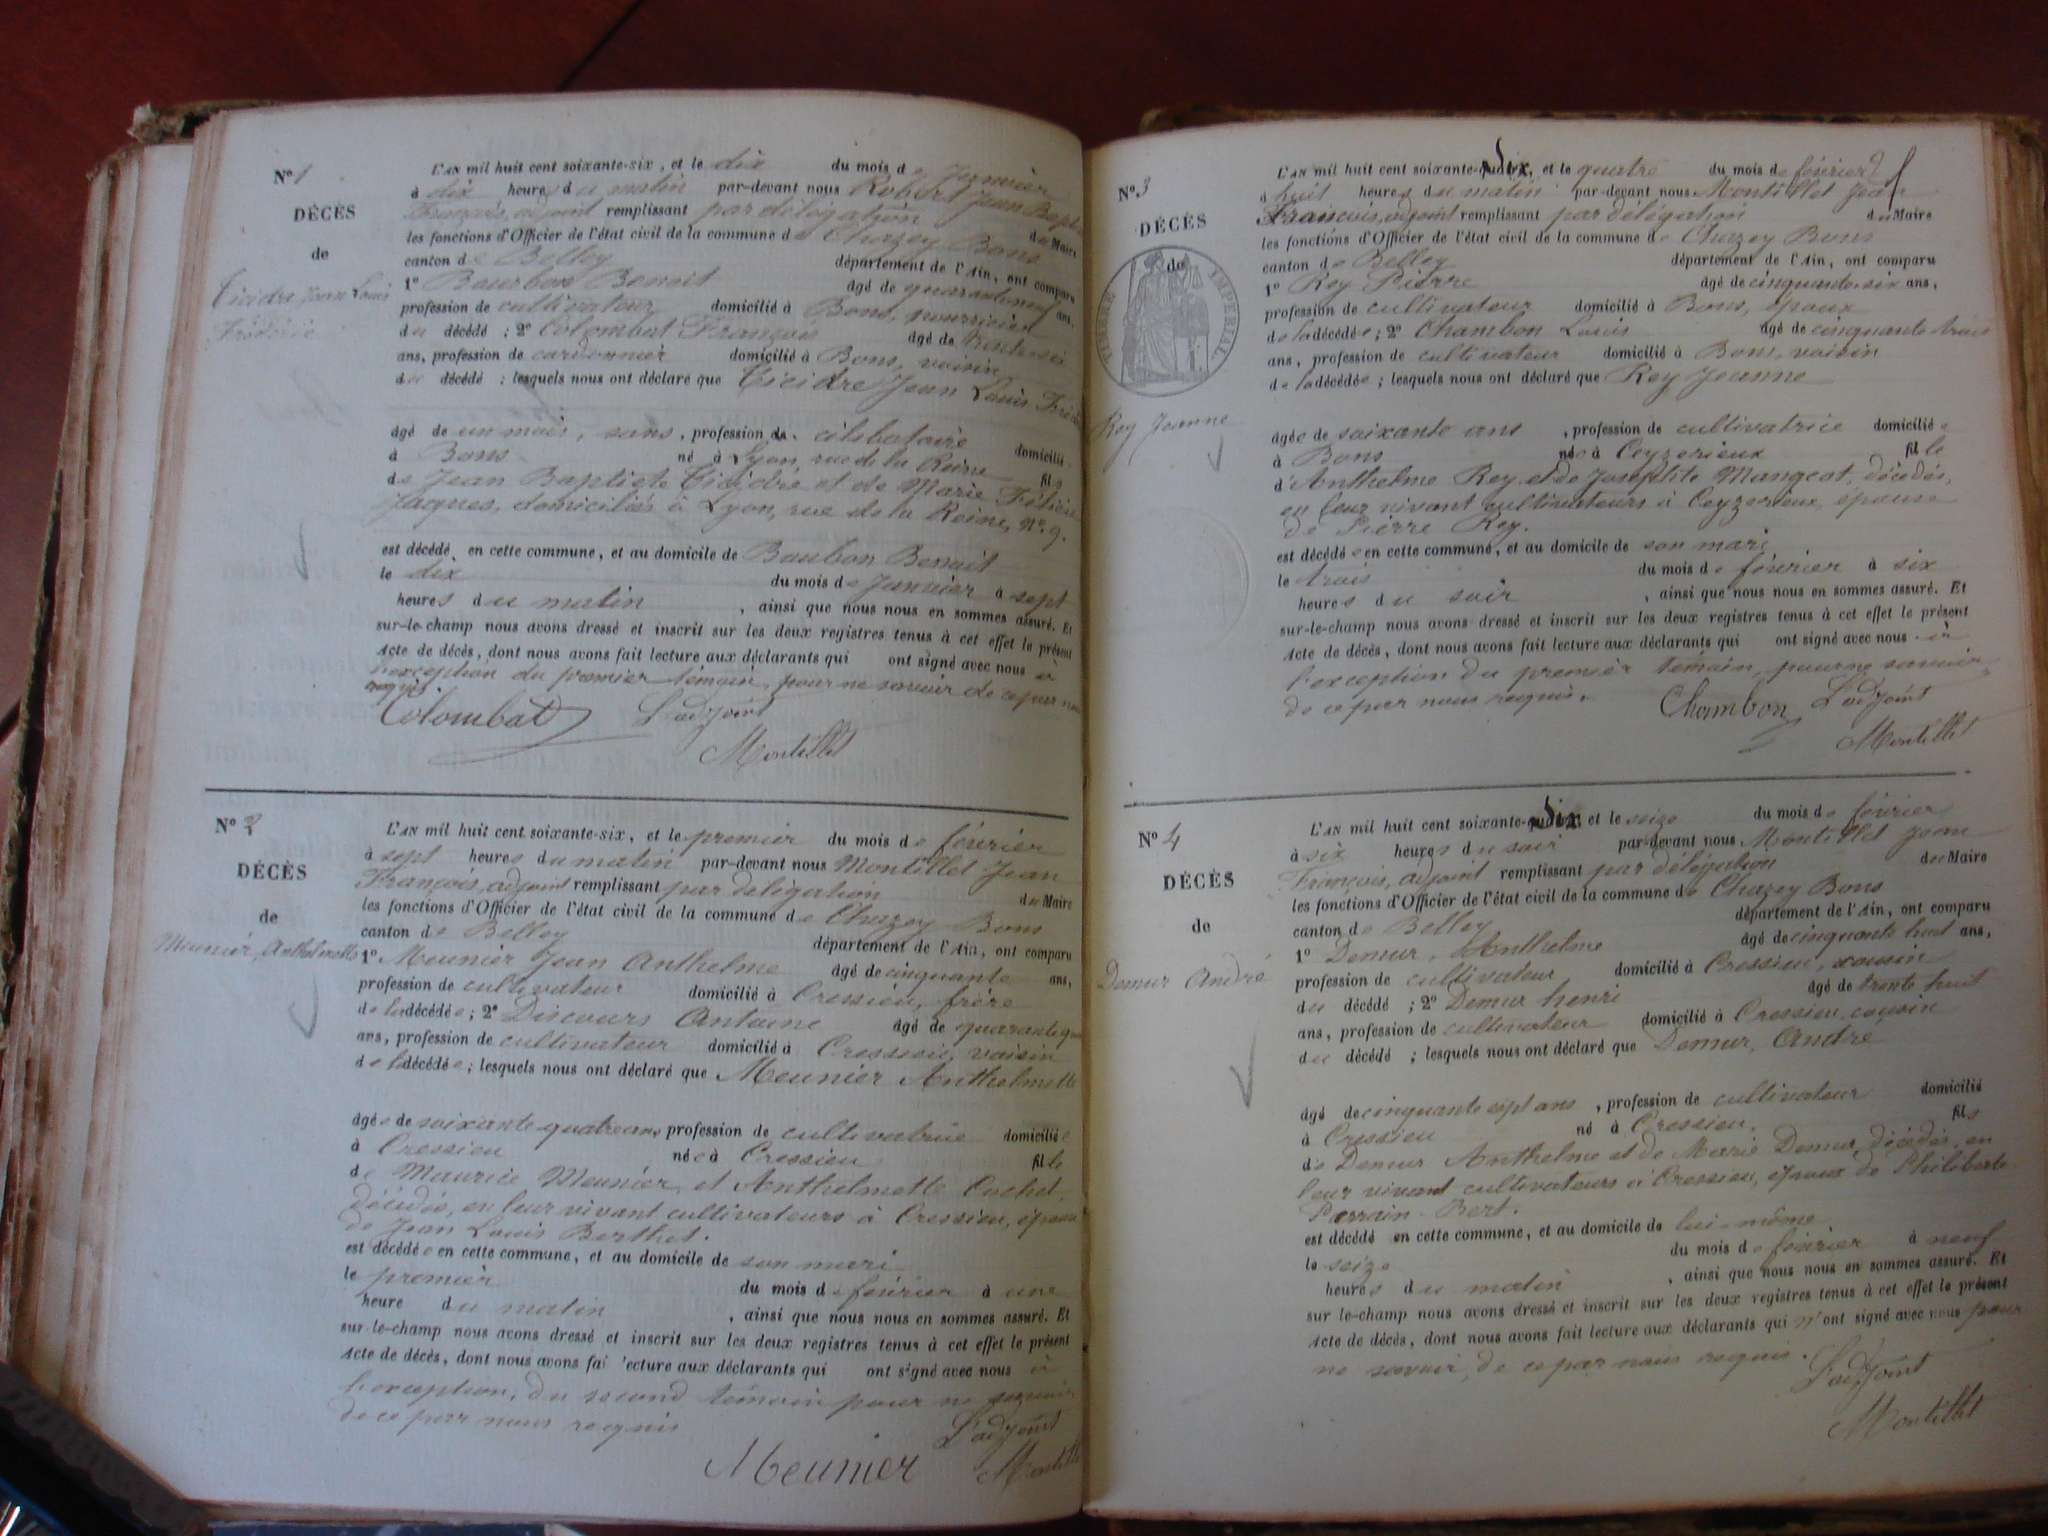 N° 1
DÉCÈS
de
Jean Louis
Frédéric
L'AN mil huit cent soixante-six, et le dix du mois de Janvier
à dix heures du matin par-devant nous Robert Jean Bapt
François, adjoint remplissant par délégation du Maire
les fonctions d'Officier de l'état civil de la commune de Chazey Bons
canton de Belley département de l'Ain, ont comparu
1° Bourbon Benoit âgé de quarante neuf ans,
profession de cultivateur domicilié à Bons, nourricier
du décédé ; 2° Colombat François âgé de trente six
ans, profession de cordonnier domicilié à Bons, voisin
du décédé ; lesquels nous ont déclaré que Jean Louis Fréd
âgé de un mois, sans, profession de célibataire domicilié
à Bons né à Lyon, rue de la Reine fils
de Jean Baptiste et de Marie
Jacques, domiciliés à Lyon, rue de la Reine, N° 9.
est décédé en cette commune, et au domicile de Baubon Benoit
le dix du mois de Janvier à sept
heures du matin , ainsi que nous nous en sommes assuré. Et
sur-le-champ nous avons dressé et inscrit sur les deux registres tenus à cet effet le présent
Acte de décès, dont nous avons fait lecture aux déclarants qui ont signé avec nous à
l'exception du premier témoin, pour ne savoir de ce par nous
requis
Colombat L'adjoint
Montillet
N° 2
DÉCÈS
de
Meunier, Anthelmette
L'AN mil huit cent soixante-six, et le premier du mois de février
à sept heures du matin par-devant nous Montillet Jean
François, adjoint remplissant par délégation du Maire
les fonctions d'Officier de l'état civil de la commune de Chazey Bons
canton de Belley département de l'Ain, ont comparu
1° Meunier Jean Anthelme âgé de cinquante ans,
profession de cultivateur domicilié à Cressieu, frère
de la décédée ; 2° Discours Antoine âgé de quarante
ans, profession de cultivateur domicilié à Cressieu, voisin
de la décédée ; lesquels nous ont déclaré que Meunier Anthelmette
âgée de soixante quatre ans, profession de cultivatrice domiciliée
à Cressieu née à Cressieu fille
de Maurice Meunier, et Anthelmette Cochet,
décédés, en leur vivant cultivateurs à Cressieu, épouse
de Jean Louis Berthet.
est décédée en cette commune, et au domicile de son mari
le premier du mois de février à une
heure du matin , ainsi que nous nous en sommes assuré. Et
sur-le-champ nous avons dressé et inscrit sur les deux registres tenus à cet effet le présent
Acte de décès, dont nous avons fai lecture aux déclarants qui ont signé avec nous à
l'exception, du second témoin pour ne savoir
de ce par nous requis L'adjoint
Meunier Montillet
N° 3
DÉCÈS
de
TIMBRE IMPÉRIAL
Rey Jeanne
L'AN mil huit cent soixante-six, et le quatre du mois de février
à huit heures du matin par-devant nous Montillet Jean
François, adjoint remplissant par délégation du Maire
les fonctions d'Officier de l'état civil de la commune de Chazey Bons
canton de Belley département de l'Ain, ont comparu
1° Rey Pierre âgé de cinquante-six ans,
profession de cultivateur domicilié à Bons, époux
de la décédée ; 2° Chambon Louis âgé de cinquante trois
ans, profession de cultivateur domicilié à Bons, voisin
de la décédée ; lesquels nous ont déclaré que Rey Jeanne
âgée de soixante ans , profession de cultivatrice domiciliée
à Bons née à Ceyzerieux fille
d'Anthelme Rey et de Josephte Mangeot, décédés,
en leur vivant cultivateurs à Ceyzerieux, épouse
de Pierre Rey.
est décédée en cette commune, et au domicile de son mari
le trois du mois de février à six
heures du soir , ainsi que nous nous en sommes assuré. Et
sur-le-champ nous avons dressé et inscrit sur les deux registres tenus à cet effet le présent
Acte de décès, dont nous avons fait lecture aux déclarants qui ont signé avec nous à
l'exception du premier témoin, pour ne savoir
de ce par nous requis.
Chambon L'adjoint
Montillet
N° 4
DÉCÈS
de
Demur André
L'AN mil huit cent soixante-six, et le seize du mois de février
à six heures du soir par-devant nous Montillet Jean
François, adjoint remplissant par délégation du Maire
les fonctions d'Officier de l'état civil de la commune de Chazey Bons
canton de Belley département de l'Ain, ont comparu
1° Demur, Anthelme âgé de cinquante huit ans,
profession de cultivateur domicilié à Cressieu, cousin
du décédé ; 2° Demur henri âgé de trente huit
ans, profession de cultivateur domicilié à Cressieu, cousin
du décédé ; lesquels nous ont déclaré que Demur, André
âgé de cinquante sept ans , profession de cultivateur domicilié
à Cressieu né à Cressieu. fils
de Demur Anthelme et de Marie Demur, décédés, en
leur vivant cultivateurs à Cressieu, époux de Philiberte
Perrain-Bert.
est décédé en cette commune, et au domicile de lui-même
le seize du mois de février à neuf
heures du matin , ainsi que nous nous en sommes assuré. Et
sur le-champ nous avons dressé et inscrit sur les deux registres tenus à cet effet le présent
Acte de décès, dont nous avons fait lecture aux déclarants qui n'ont signé avec nous pour
ne savoir, de ce par nous requis.
L'adjoint
Montillet